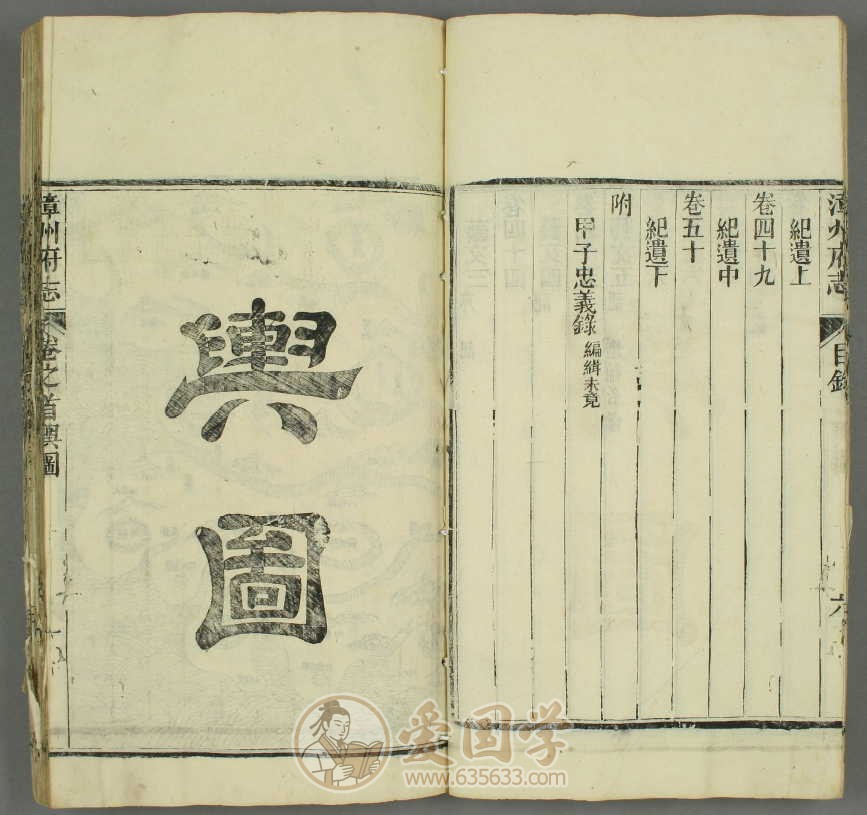 漳州府志
目錄
六
紀遺上
卷四十九
紀遺中
卷五十
紀遺下
附
甲子忠義錄 編緝未竟
輿圖
漳州府志
卷之首輿圖
爱国学
www.635633.com